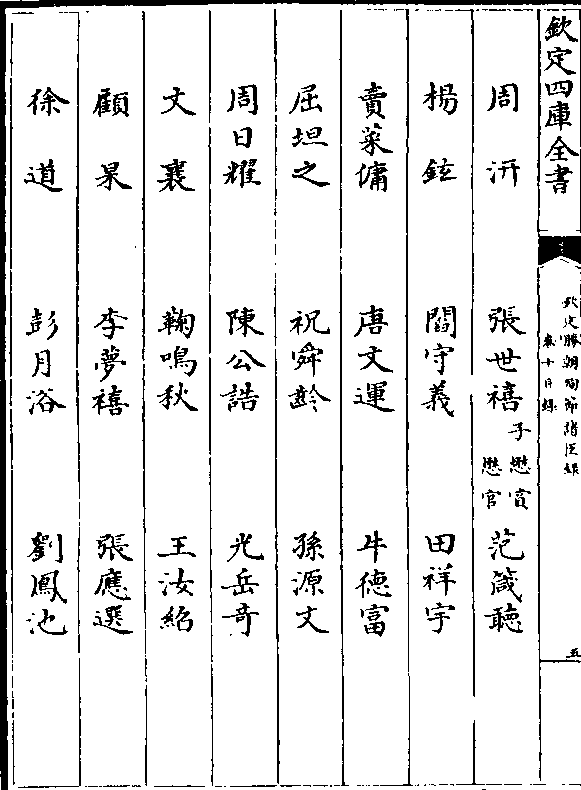 欽定四庫全書
欽定勝朝殉節諸臣錄
卷十目錄
五
周汧 張世禧子懋賞懋官 范箴聽
楊鉉 閻守義 田祥宇
賣菜傭 唐文運 牛德富
屈坦之 祝舜齡 孫源文
周日耀 陳公誥 光岳奇
文襄 鞠鳴秋 王汝紹
顧杲 李夢禧 張應選
徐道 彭月浴 劉鳳池